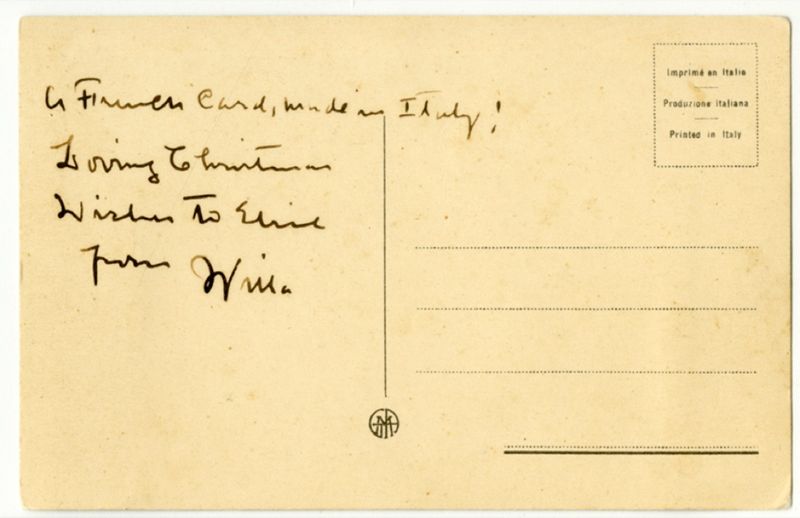 A French Card, made in Italy!
Loving Christmas
Wishes to Elsie
from Willa
Imprimé en Italie
Produzione italiana
Printed in Italy